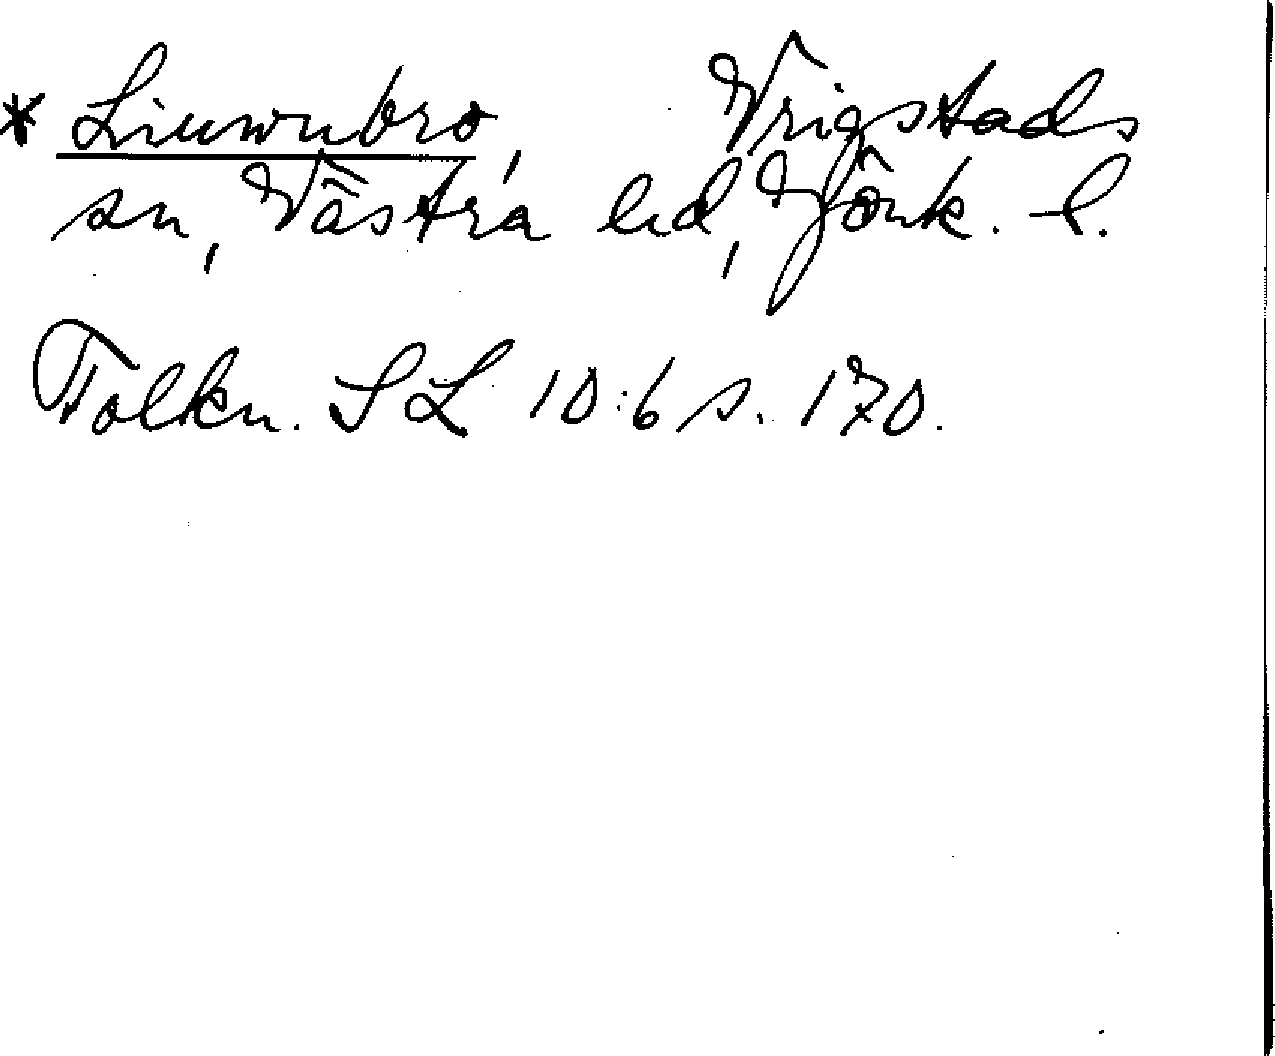 * Liuwnubro, Vrigstads
sn, Västra hd, Jönk. l.
Folkn. SL 10:6 s. 170.